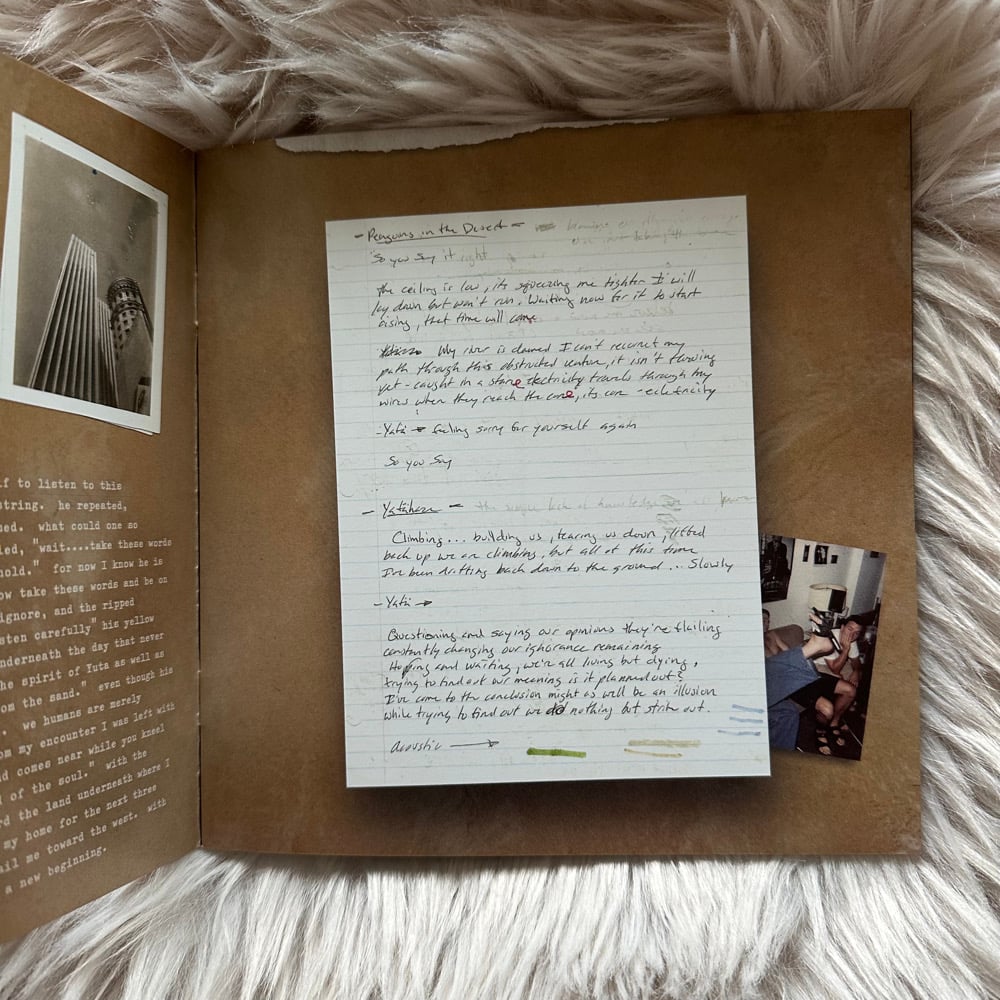 if to listen to this
string. he repeated,
ued. what could one so
ied, "wait....take these words
hold." for now I know he is
ow take these words and be on
ignore, and the ripped
sten carefully" his yellow
nderneath the day that never
he spirit of Yuta as well as
om the sand." even though his
. we humans are merely
om my encounter I was left with
d comes near while you kneel
d of the soul." with the
rd the land underneath where I
my home for the next three
ail me toward the west. with
a new beginning.
- Penguins in the Desert -
So you say it right
the ceiling is low, its squeezing me tighter I will
lay down but won't run. Waiting now for it to start
rising, that time will come
My river is damed I can't reconnect my
path through this obstructed venture, it isn't flowing
yet - caught in a stare electricity travels through my
wires when they reach the core, its core - eclectricity
- Yatá → feeling sorry for yourself again
So you say
- Yatahaze - the people lack of knowledge
Climbing... building us, tearing us down, lifted
back up we are climbing, but all at this time
I've been drifting back down to the ground ... Slowly
- Yatá →
Questioning and saying our opinions they're flailing
constantly changing our ignorance remaining
Hoping and waiting, we're all living but dying,
trying to find out our meaning is it planned out?
I've come to the conclusion might as well be an illusion
while trying to find out we do nothing but strike out.
Acoustic →